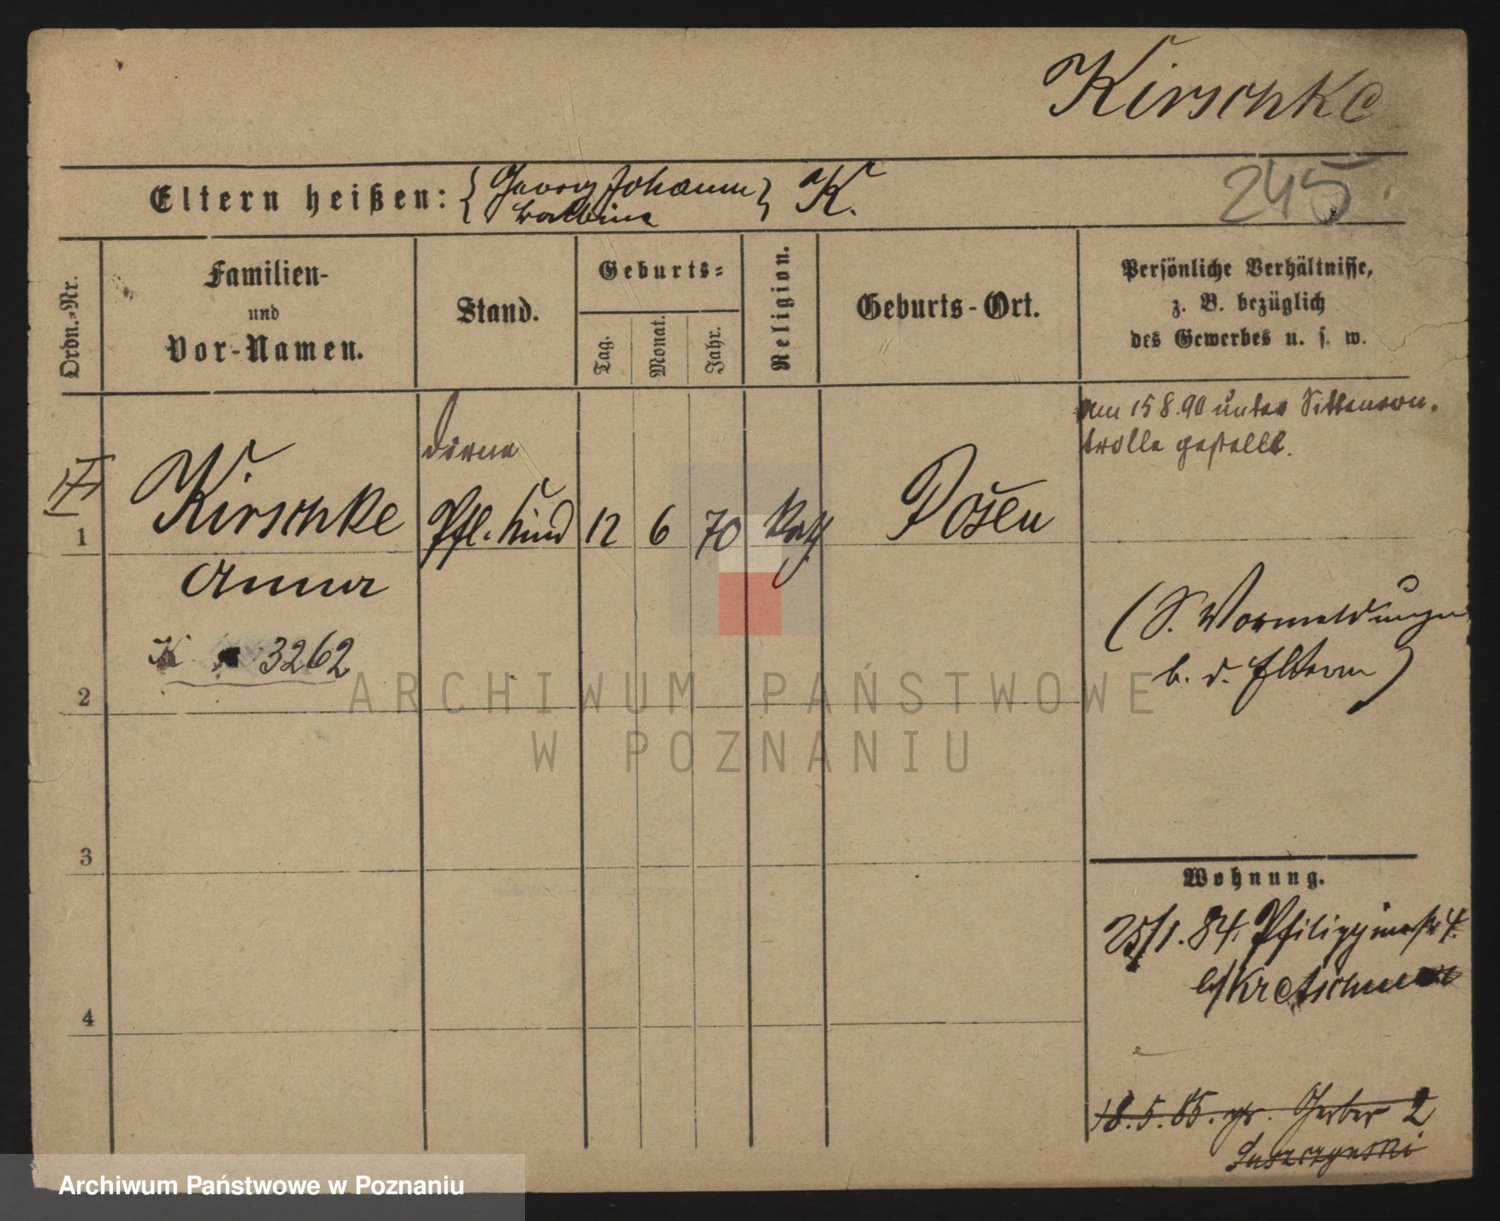 Kirschke
245.
Eltern heißen: { Georg Johann } K.
Balbina
Ordn.-Nr.
Familien-
und
Vor-Namen.
Stand.
Geburts-
Tag.
Monat.
Jahr.
Religion.
Geburts-Ort.
Persönliche Verhältnisse,
z. B. bezüglich
des Gewerbes u. s. w.
am 15 8 90 unter Sittencon-
trolle gestellt.
Dirne
1
Kirschke
Pfl. Kind
12
6
70
Kath
Posen
Anna
(S. Vormeldungen
b. d. Eltern)
K 3262
2
ARCHIWUM PAŃSTWOWE
W POZNANIU
3
Wohnung.
25/1. 84. Philippinenstr 4.
b/ Kretschmer
4
18. 5. 85. gr. Gerber 2
Suszczynski
Archiwum Państwowe w Poznaniu